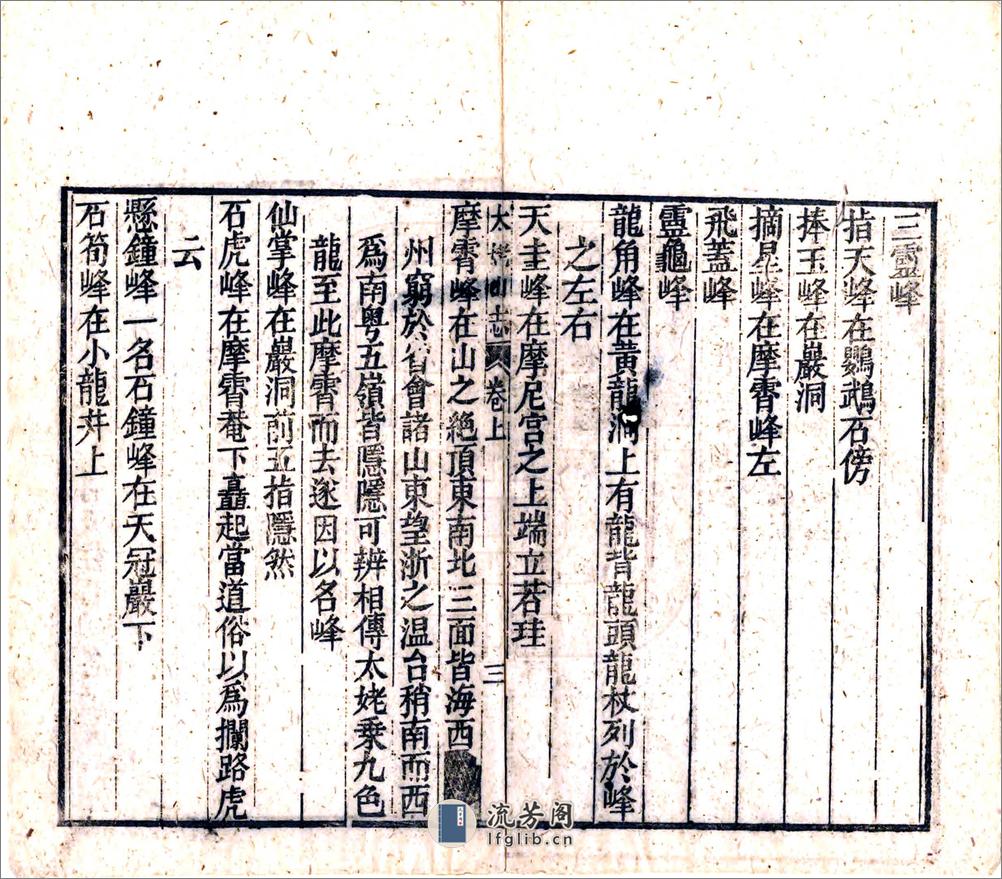 三靈峰
指天峰在鸚鵡石傍
捧玉峰在巖洞
摘星峰在摩霄峰左
飛蓋峰
靈龜峰
龍角峰在黃龍洞上有龍背龍頭龍杖列於峰
之左右
天圭峰在摩尼宮之上端立若珪
太姥山志 卷上 三
摩霄峰在山之絶頂東南北三面皆海西
州窮於省會諸山東望浙之温台稍南而西
爲南粤五嶺皆隱隱可辨相傳太姥乗九色
龍至此摩霄而去遂因以名峰
仙掌峰在巖洞前五指隱然
石虎峰在摩霄菴下矗起當道俗以爲攔路虎
云
懸鐘峰一名石鐘峰在天冠巖下
石筍峰在小龍井上
流芳阁
lfglib.cn